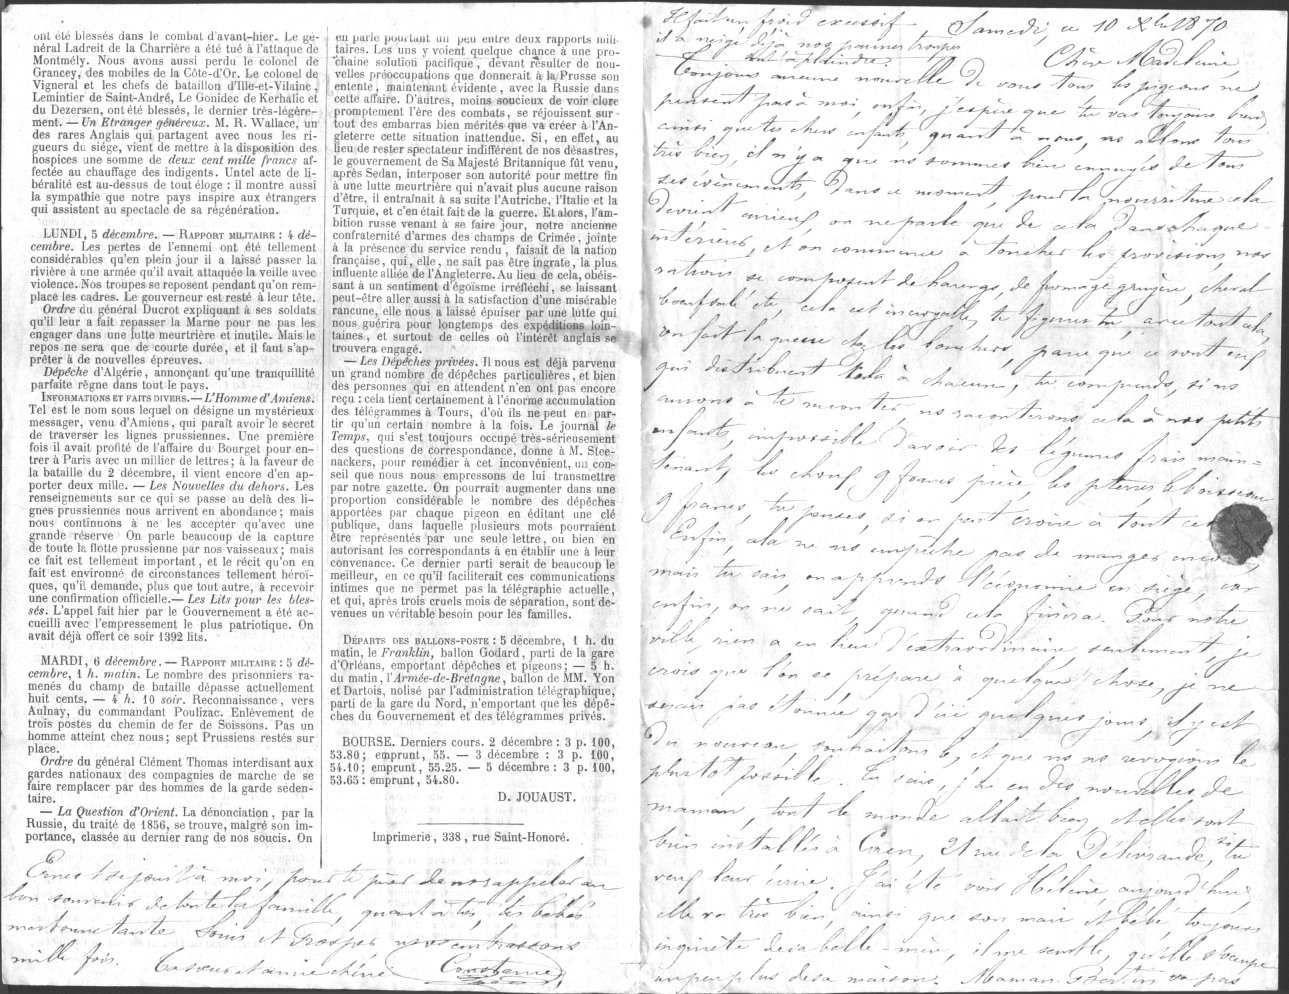 ont été blessés dans le combat d'avant-hier. Le gé-
néral Ladreit de la Charrière a été tué à l'attaque de
Montmély. Nous avons aussi perdu le colonel de
Grancey, des mobiles de la Côte-d'Or. Le colonel de
Vigneral et les chefs de bataillon d'Ille-et-Vilaine,
Lemintier de Saint-André, Le Gonidec de Kerhalic et
du Dezersen, ont été blessés, le dernier très-légère-
ment. — Un Etranger généreux. M. R. Wallace, un
des rares Anglais qui partagent avec nous les ri-
gueurs du siége, vient de mettre à la disposition des
hospices une somme de deux cent mille francs af-
fectée au chauffage des indigents. Un tel acte de li-
béralité est au-dessus de tout éloge : il montre aussi
la sympathie que notre pays inspire aux étrangers
qui assistent au spectacle de sa régénération.
LUNDI, 5 décembre. — RAPPORT MILITAIRE : 4 dé-
cembre. Les pertes de l'ennemi ont été tellement
considérables qu'en plein jour il a laissé passer la
rivière à une armée qu'il avait attaquée la veille avec
violence. Nos troupes se reposent pendant qu'on rem-
place les cadres. Le gouverneur est resté à leur tête.
Ordre du général Ducrot expliquant à ses soldats
qu'il leur a fait repasser la Marne pour ne pas les
engager dans une lutte meurtrière et inutile. Mais le
repos ne sera que de courte durée, et il faut s'ap-
prêter à de nouvelles épreuves.
Dépêche d'Algérie, annonçant qu'une tranquillité
parfaite règne dans tout le pays.
INFORMATIONS ET FAITS DIVERS. — L'Homme d'Amiens.
Tel est le nom sous lequel on désigne un mystérieux
messager, venu d'Amiens, qui paraît avoir le secret
de traverser les lignes prussiennes. Une première
fois il avait profité de l'affaire du Bourget pour en-
trer à Paris avec un millier de lettres ; à la faveur de
la bataille du 2 décembre, il vient encore d'en ap-
porter deux mille. — Les Nouvelles du dehors. Les
renseignements sur ce qui se passe au delà des li-
gnes prussiennes nous arrivent en abondance ; mais
nous continuons à ne les accepter qu'avec une
grande réserve On parle beaucoup de la capture
de toute la flotte prussienne par nos vaisseaux ; mais
ce fait est tellement important, et le récit qu'on en
fait est environné de circonstances tellement héroï-
ques, qu'il demande, plus que tout autre, à recevoir
une confirmation officielle. — Les Lits pour les bles-
sés. L'appel fait hier par le Gouvernement a été ac-
cueilli avec l'empressement le plus patriotique. On
avait déjà offert ce soir 1392 lits.
MARDI, 6 décembre. — RAPPORT MILITAIRE : 5 dé-
cembre, 1 h. matin. Le nombre des prisonniers ra-
menés du champ de bataille dépasse actuellement
huit cents. — 4 h. 10 soir. Reconnaissance, vers
Aulnay, du commandant Poulizac. Enlèvement de
trois postes du chemin de fer de Soissons. Pas un
homme atteint chez nous ; sept Prussiens restés sur
place.
Ordre du général Clément Thomas interdisant aux
gardes nationaux des compagnies de marche de se
faire remplacer par des hommes de la garde séden-
taire.
— La Question d'Orient. La dénonciation, par la
Russie, du traité de 1856, se trouve, malgré son im-
portance, classée au dernier rang de nos soucis. On
en parle pourtant un peu entre deux rapports mili-
taires. Les uns y voient quelque chance à une pro-
chaine solution pacifique, devant résulter de nou-
velles préoccupations que donnerait à la Prusse son
entente, maintenant évidente, avec la Russie dans
cette affaire. D'autres, moins soucieux de voir clore
promptement l'ère des combats, se réjouissent sur-
tout des embarras bien mérités que va créer à l'An-
gleterre cette situation inattendue. Si, en effet, au
lieu de rester spectateur indifférent de nos désastres,
le gouvernement de Sa Majesté Britannique fût venu,
après Sedan, interposer son autorité pour mettre fin
à une lutte meurtrière qui n'avait plus aucune raison
d'être, il entraînait à sa suite l'Autriche, l'Italie et la
Turquie, et c'en était fait de la guerre. Et alors, l'am-
bition russe venant à se faire jour, notre ancienne
confraternité d'armes des champs de Crimée, jointe
à la présence du service rendu, faisait de la nation
française, qui, elle, ne sait pas être ingrate, la plus
influente alliée de l'Angleterre. Au lieu de cela, obéis-
sant à un sentiment d'égoïsme irréfléchi, se laissant
peut-être aller aussi à la satisfaction d'une misérable
rancune, elle nous a laissé épuiser par une lutte qui
nous guérira pour longtemps des expéditions loin-
taines, et surtout de celles où l'intérêt anglais se
trouvera engagé.
— Les Dépêches privées. Il nous est déjà parvenu
un grand nombre de dépêches particulières, et bien
des personnes qui en attendent n'en ont pas encore
reçu : cela tient certainement à l'énorme accumulation
des télégrammes à Tours, d'où ils ne peut en par-
tir qu'un certain nombre à la fois. Le journal le
Temps, qui s'est toujours occupé très-sérieusement
des questions de correspondance, donne à M. Stee-
nackers, pour remédier à cet inconvénient, un con-
seil que nous nous empressons de lui transmettre
par notre gazette. On pourrait augmenter dans une
proportion considérable le nombre des dépêches
apportées par chaque pigeon en éditant une clé
publique, dans laquelle plusieurs mots pourraient
être représentés par une seule lettre, ou bien en
autorisant les correspondants à en établir une à leur
convenance. Ce dernier parti serait de beaucoup le
meilleur, en ce qu'il faciliterait ces communications
intimes que ne permet pas la télégraphie actuelle,
et qui, après trois cruels mois de séparation, sont de-
venues un véritable besoin pour les familles.
DÉPARTS DES BALLONS-POSTE : 5 décembre, 1 h. du
matin, le Franklin, ballon Godard, parti de la gare
d'Orléans, emportant dépêches et pigeons ; — 5 h.
du matin, l'Armée-de-Bretagne, ballon de MM. Yon
et Dartois, nolisé par l'administration télégraphique,
parti de la gare du Nord, n'emportant que les dépê-
ches du Gouvernement et des télégrammes privés.
BOURSE. Derniers cours. 2 décembre : 3 p. 100,
53.80 ; emprunt, 55. — 3 décembre : 3 p. 100,
54.10 ; emprunt, 55.25. — 5 décembre : 3 p. 100,
53.65 : emprunt, 54.80.
D. JOUAUST.
Imprimerie, 338, rue Saint-Honoré.
Ernest se joint à moi, pour te prier de nous rappeler au
bon souvenir de toute la famille, quant à toi, tes bébés
ma bonne tante Louis et Prosper nous vous embrassons
mille fois. Ta sœur et amie chérie Constance
Il fait un froid excessif
il a neigé déjà nos pauvres troupes
sont à plaindre.
Samedi, ce 10 Xbre 1870
Chère Madeleine,
Toujours aucune nouvelle de vous tous les pigeons ne
pensent pas à moi enfin, j'espère que tu vas toujours bien
ainsi que tes chers enfants, quant à nous, ns allons tous
très bien, il n'y a que ns sommes bien ennuyés de tous
ses événements, Dans ce moment, pour la nourriture cela
devient curieux, on ne parle que de cela dans chaque
intérieur, et on commence à toucher les provisions, nos
rations se composent de harengs, de fromage gruyère, cheval
bœuf salé etc, cela est incroyable, te figures tu, avec tout cela,
on fait la queue chez les bouchers, parce que ce sont eux
qui distribuent cela à chacun, tu comprends, si ns
aurons à te raconter, ns raconterons cela à nos petits
enfants, impossible d'avoir des légumes frais main=
tenant, les choux 9 francs pièce, les pterres le boisseau
9 francs, tu penses, si on peut croire à tout
Enfin, cela ne ns empêche pas de manger
mais tu sais, on apprends l'économie en siège, car
enfin, on ne sait, quand cela finira. Pour notre
ville, rien a eu lieu d'extraordinaire, seulement, je
crois que l'on se prépare à quelque chose, je ne
serais pas étonnée que d'ici quelques jours, il y est
du nouveau, souhaitons le, et que ns ns revoyons le
plutot possible. Tu sais, j'ai eu des nouvelles de
maman tout le monde allait bien, et elles sont
bien installés à Caen, 21 rue de la Délivrande, si tu
veux leur écrire. J'ai été voir Hélène, aujourd'hui,
elle va très bien, ainsi que son mari et bébé, toujours
inquiète de sa belle-mère, il me semble, qu'elle s'occupe
un peu plus de sa maison. Maman Bertin va pas